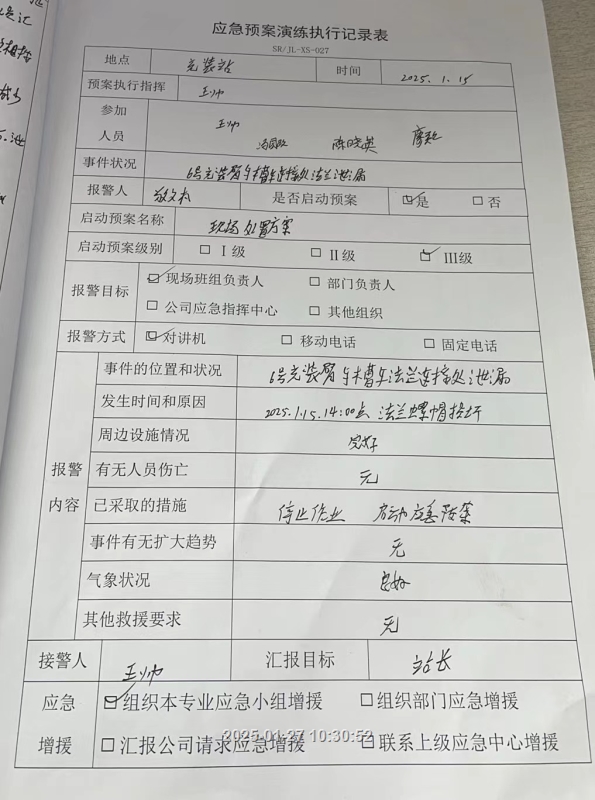 应急预案演练执行记录表
SR/JL-XS-027
地点 充装站 时间 2025.1.15
预案执行指挥 王帅
参加人员 王帅 陈晓英
事件状况 6号充装臂与槽车连接处法兰泄漏
报警人 是否启动预案 ☑是 □否
启动预案名称 现场处置方案
启动预案级别 □Ⅰ级 □Ⅱ级 ☑Ⅲ级
报警目标 ☑现场班组负责人 □部门负责人
□公司应急指挥中心 □其他组织
报警方式 ☑对讲机 □移动电话 □固定电话
报警内容
事件的位置和状况 6号充装臂与槽车法兰连接处泄漏
发生时间和原因 2025.1.15.14:00点 法兰螺帽损坏
周边设施情况 完好
有无人员伤亡 无
已采取的措施 停止作业 启动应急预案
事件有无扩大趋势 无
气象状况 良好
其他救援要求 无
接警人 王帅 汇报目标 站长
应急增援
☑组织本专业应急小组增援 □组织部门应急增援
□汇报公司请求应急增援 □联系上级应急中心增援
2025-01-27 10:30:52